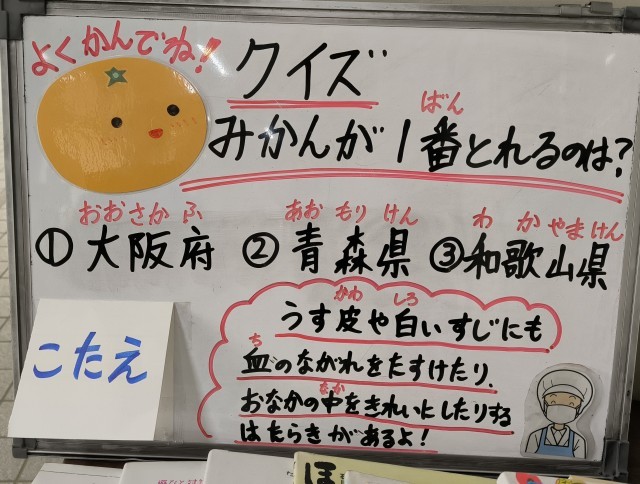 よくかんでね！
クイズ
ばん
みかんが1番とれるのは？
おおさかふ あおもりけん わかやまけん
①大阪府 ②青森県 ③和歌山県
かわ しろ
うす皮や白いすじにも
ち
血のながれをたすけたり、
なか
おなかの中をきれいにしたりする
はたらきがあるよ！
こたえ
ほ